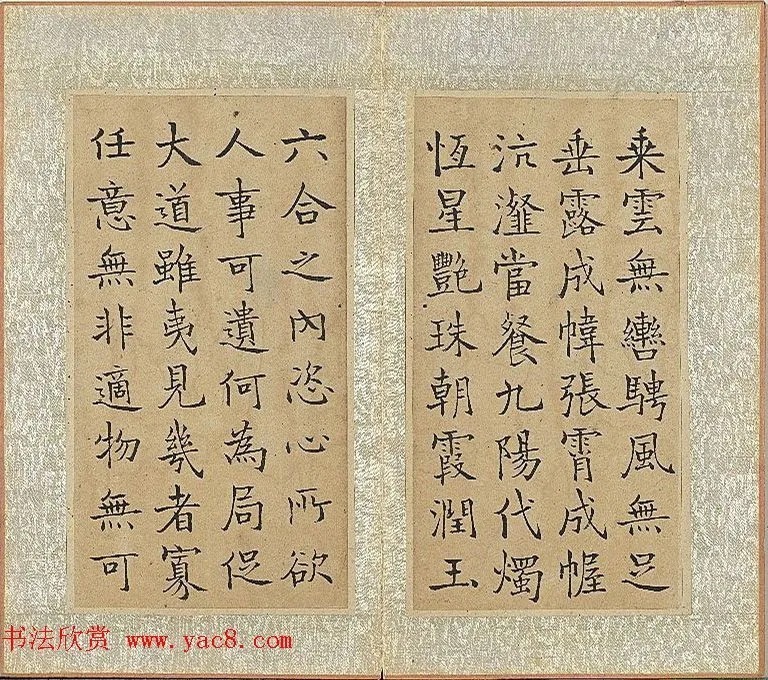 乘雲無轡騁風無足
垂露成幃張霄成幄
沆瀣當餐九陽代燭
恆星豔珠朝霞潤玉
六合之內恣心所欲
人事可遺何為局促
大道雖夷見幾者寡
任意無非適物無可
书法欣赏 www.yac8.com